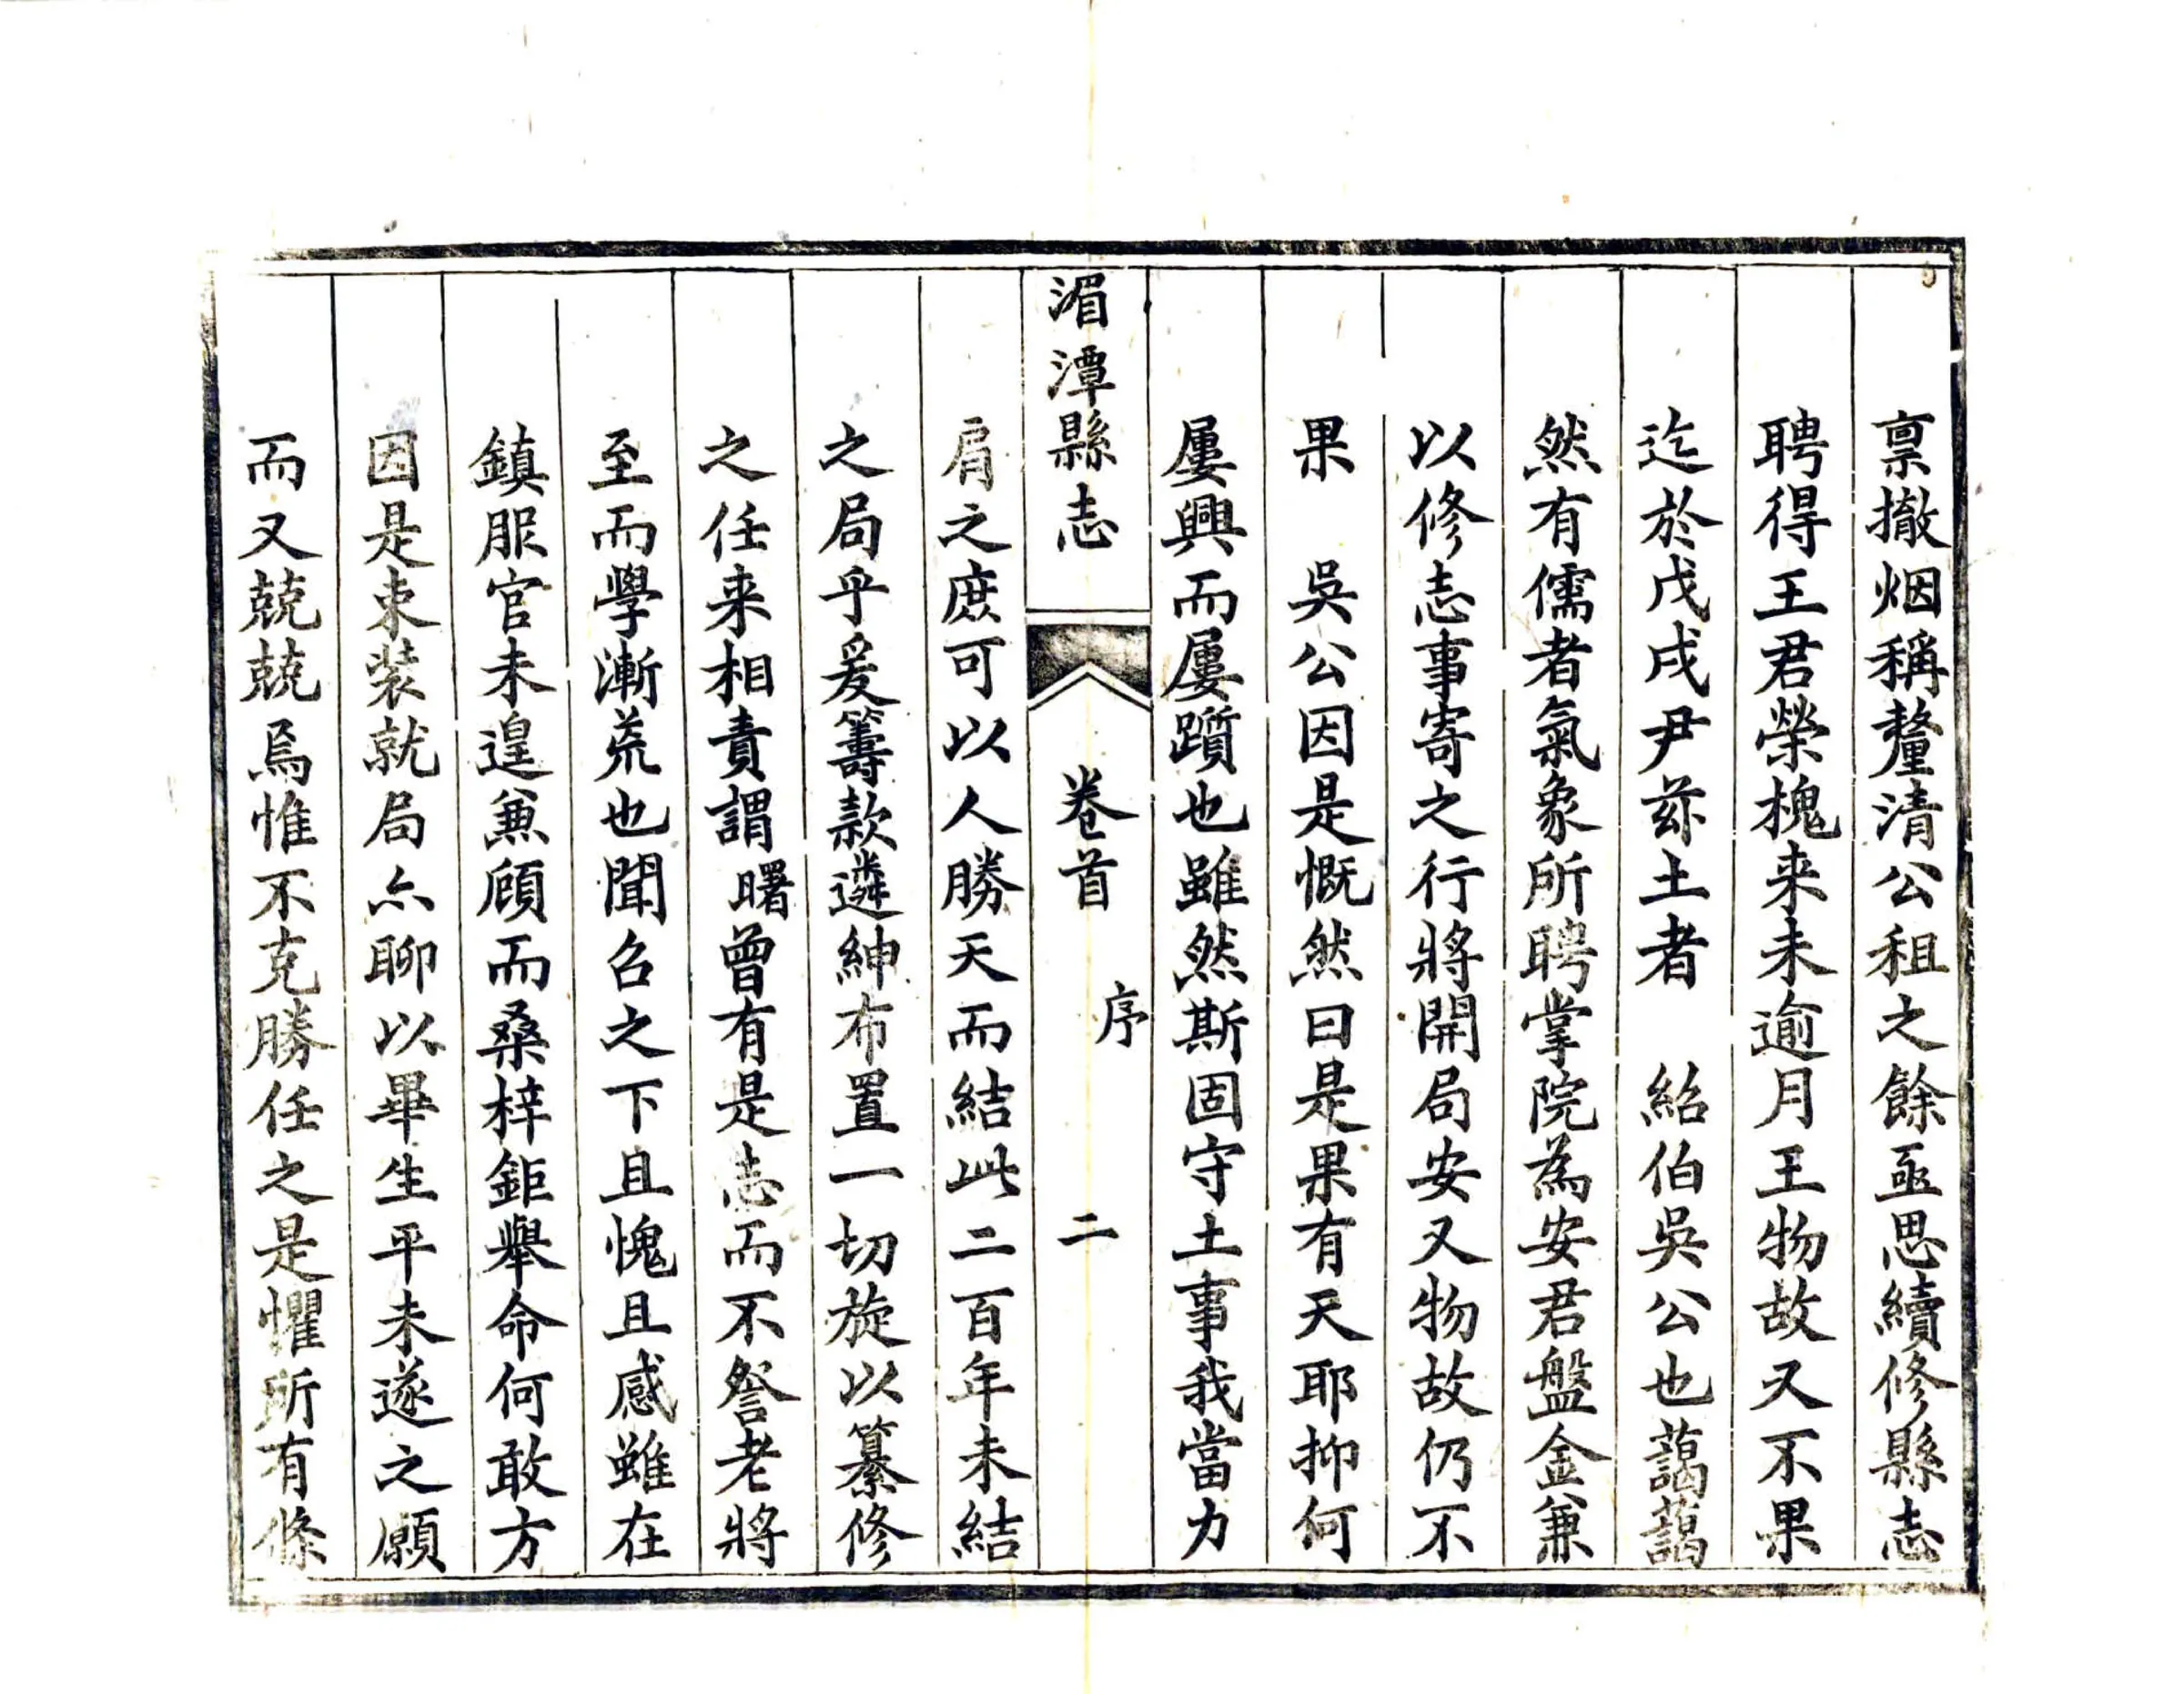 禀撤烟稱釐清公租之餘亟思續修縣志
聘得王君榮槐来未逾月王物故又不果
迄於戊戌尹茲土者　紹伯吳公也藹藹
然有儒者氣象所聘掌院為安君盤金兼
以修志事寄之行將開局安又物故仍不
果　吳公因是慨然曰是果有天耶抑何
屢興而屢躓也雖然斯固守土事我當力
湄潭縣志　卷首　序　二
肩之庶可以人勝天而結此二百年未結
之局乎爰籌款遴紳布置一切旋以纂修
之任来相責謂曙曾有是志而不詧老將
至而學漸荒也聞召之下且愧且感雖在
鎮服官未遑兼顧而桑梓鉅舉命何敢方
因是束装就局亦聊以畢生平未遂之願
而又兢兢焉惟不克勝任之是懼所有條